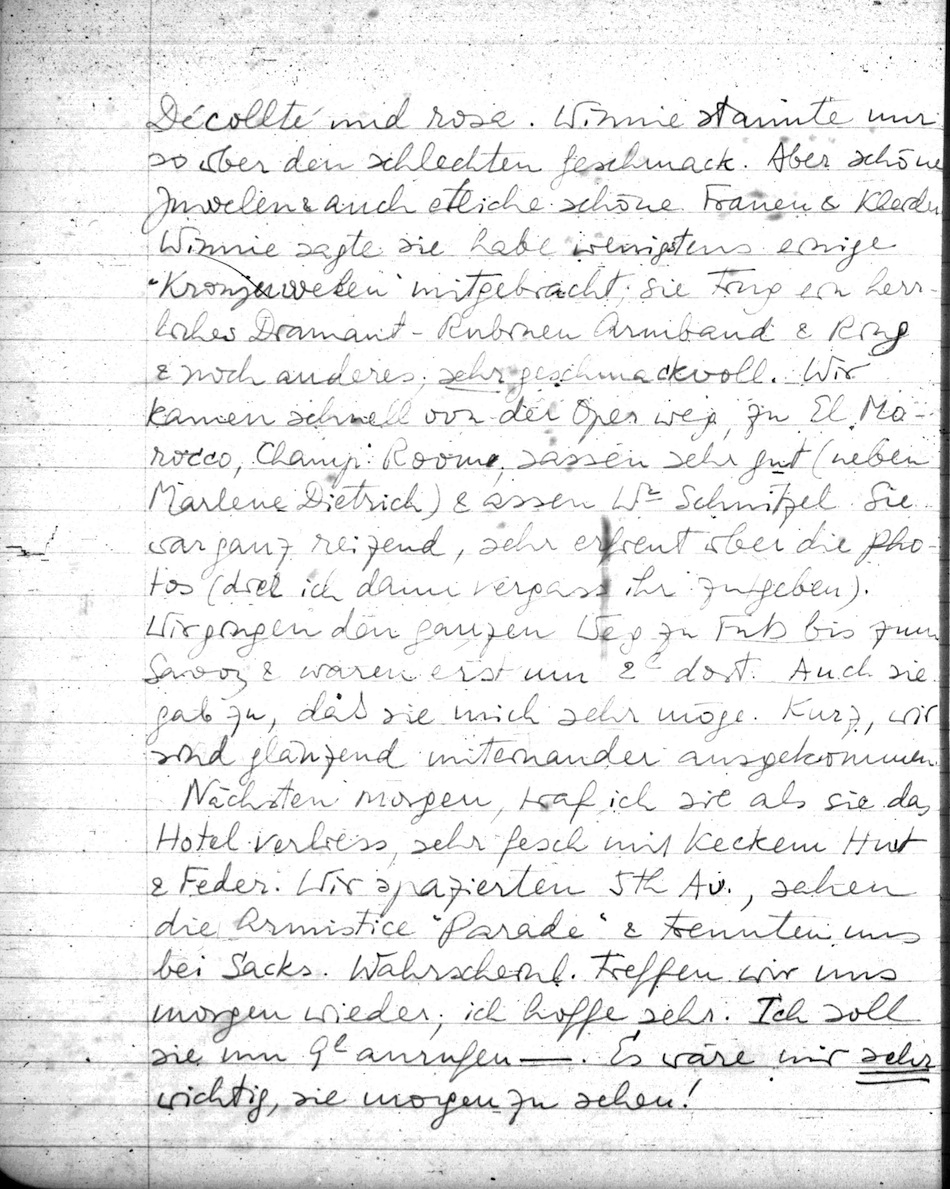 Décollté und rosa. Winnie staunte nur
so über den schlechten Geschmack. Aber schöne
Juwelen & auch etliche schöne Frauen & Kleider
Winnie sagte sie habe wenigstens einige
"Kronjuwelen" mitgebracht; sie trug ein herr-
liches Diamant-Rubinen Armband & Ring
& noch anderes, sehr geschmackvoll. Wir
kamen schnell von der Oper weg, zu El Mo-
rocco, Champ. Room, sassen sehr gut (neben
Marlene Dietrich) & assen Wr Schnitzel. Sie
war ganz reizend, sehr erfreut über die Pho-
tos (die ich dann vergass ihr zu geben).
Wir gingen den ganzen Weg zu Fuß bis zum
Savoy & waren erst um 2h dort. Auch sie
gab zu, daß sie mich sehr möge. Kurz, wir
sind glänzend miteinander ausgekommen.
Nächsten morgen, traf ich sie als sie das
Hotel verliess, sehr fesch mit keckem Hut
& Feder. Wir spazierten 5th Av., sahen
die Armistice "Parade" & trennten uns
bei Sacks. Wahrscheinl. treffen wir uns
morgen wieder, ich hoffe sehr. Ich soll
sie um 9h anrufen —. Es wäre mir sehr
wichtig, sie morgen zu sehen!